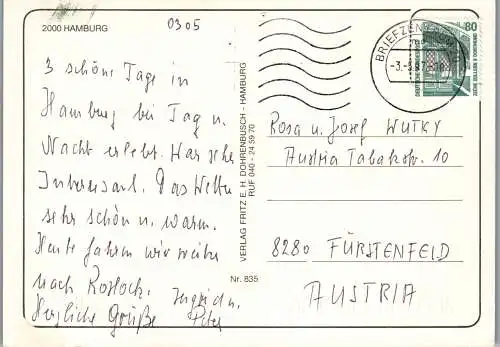 0305
2000 HAMBURG
3 schöne Tage in
Hamburg bei Tag u.
Nacht erlebt. War sehr
Interessant. Das Wetter
sehr schön u. warm.
Heute fahren wir weiter
nach Rostock.
Herzliche Grüße
Ingrid u.
Peter
VERLAG FRITZ E. H. DOHRENBUSCH - HAMBURG
RUF 040 - 24 59 70
Nr. 835
BRIEFZEN
80
Rosa u. Josef WUTKY
Austria Tabakstr. 10
8280 FÜRSTENFELD
AUSTRIA